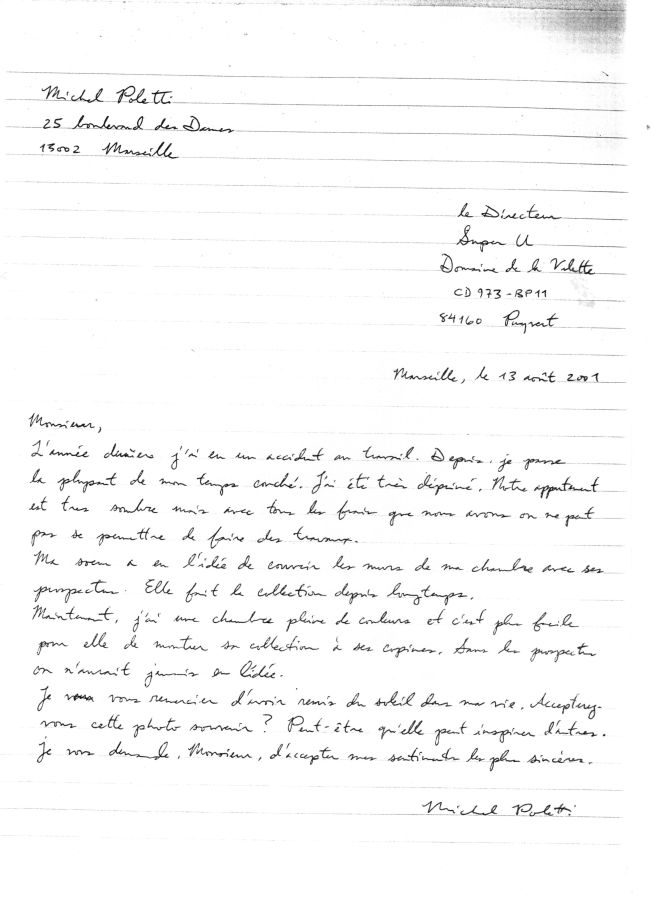 Michel Poletti
25 boulevard des Dames
13002 Marseille
le Directeur
Super U
Domaine de la Vilette
CD 973 - BP11
84160 Puyvert
Marseille, le 13 août 2001
Monsieur,
L'année dernière j'ai eu un accident au travail. Depuis, je passe
la plupart de mon temps couché. J'ai été très déprimé. Notre appartement
est tres sombre mais avec tous les frais que nous avons on ne peut
pas se permettre de faire des travaux.
Ma soeur a eu l'idée de couvrir les murs de ma chambre avec ses
prospectus. Elle fait la collection depuis longtemps.
Maintenant, j'ai une chambre pleine de couleurs et c'est plus facile
pour elle de montrer sa collection à ses copines. Sans les prospectus
on n'aurait jamais eu l'idée.
Je vous remercier d'avoir remis du soleil dans ma vie. Accepterez-
vous cette photo souvenir ? Peut-être qu'elle peut inspirer d'autres.
Je vous demande, Monsieur, d'accepter mes sentiments les plus sincères.
Michel Poletti